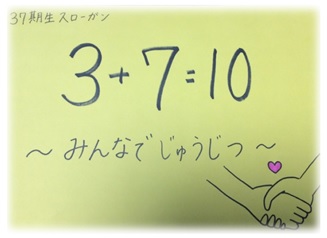 37期生スローガン
3+7=10
～みんなでじゅうじつ～